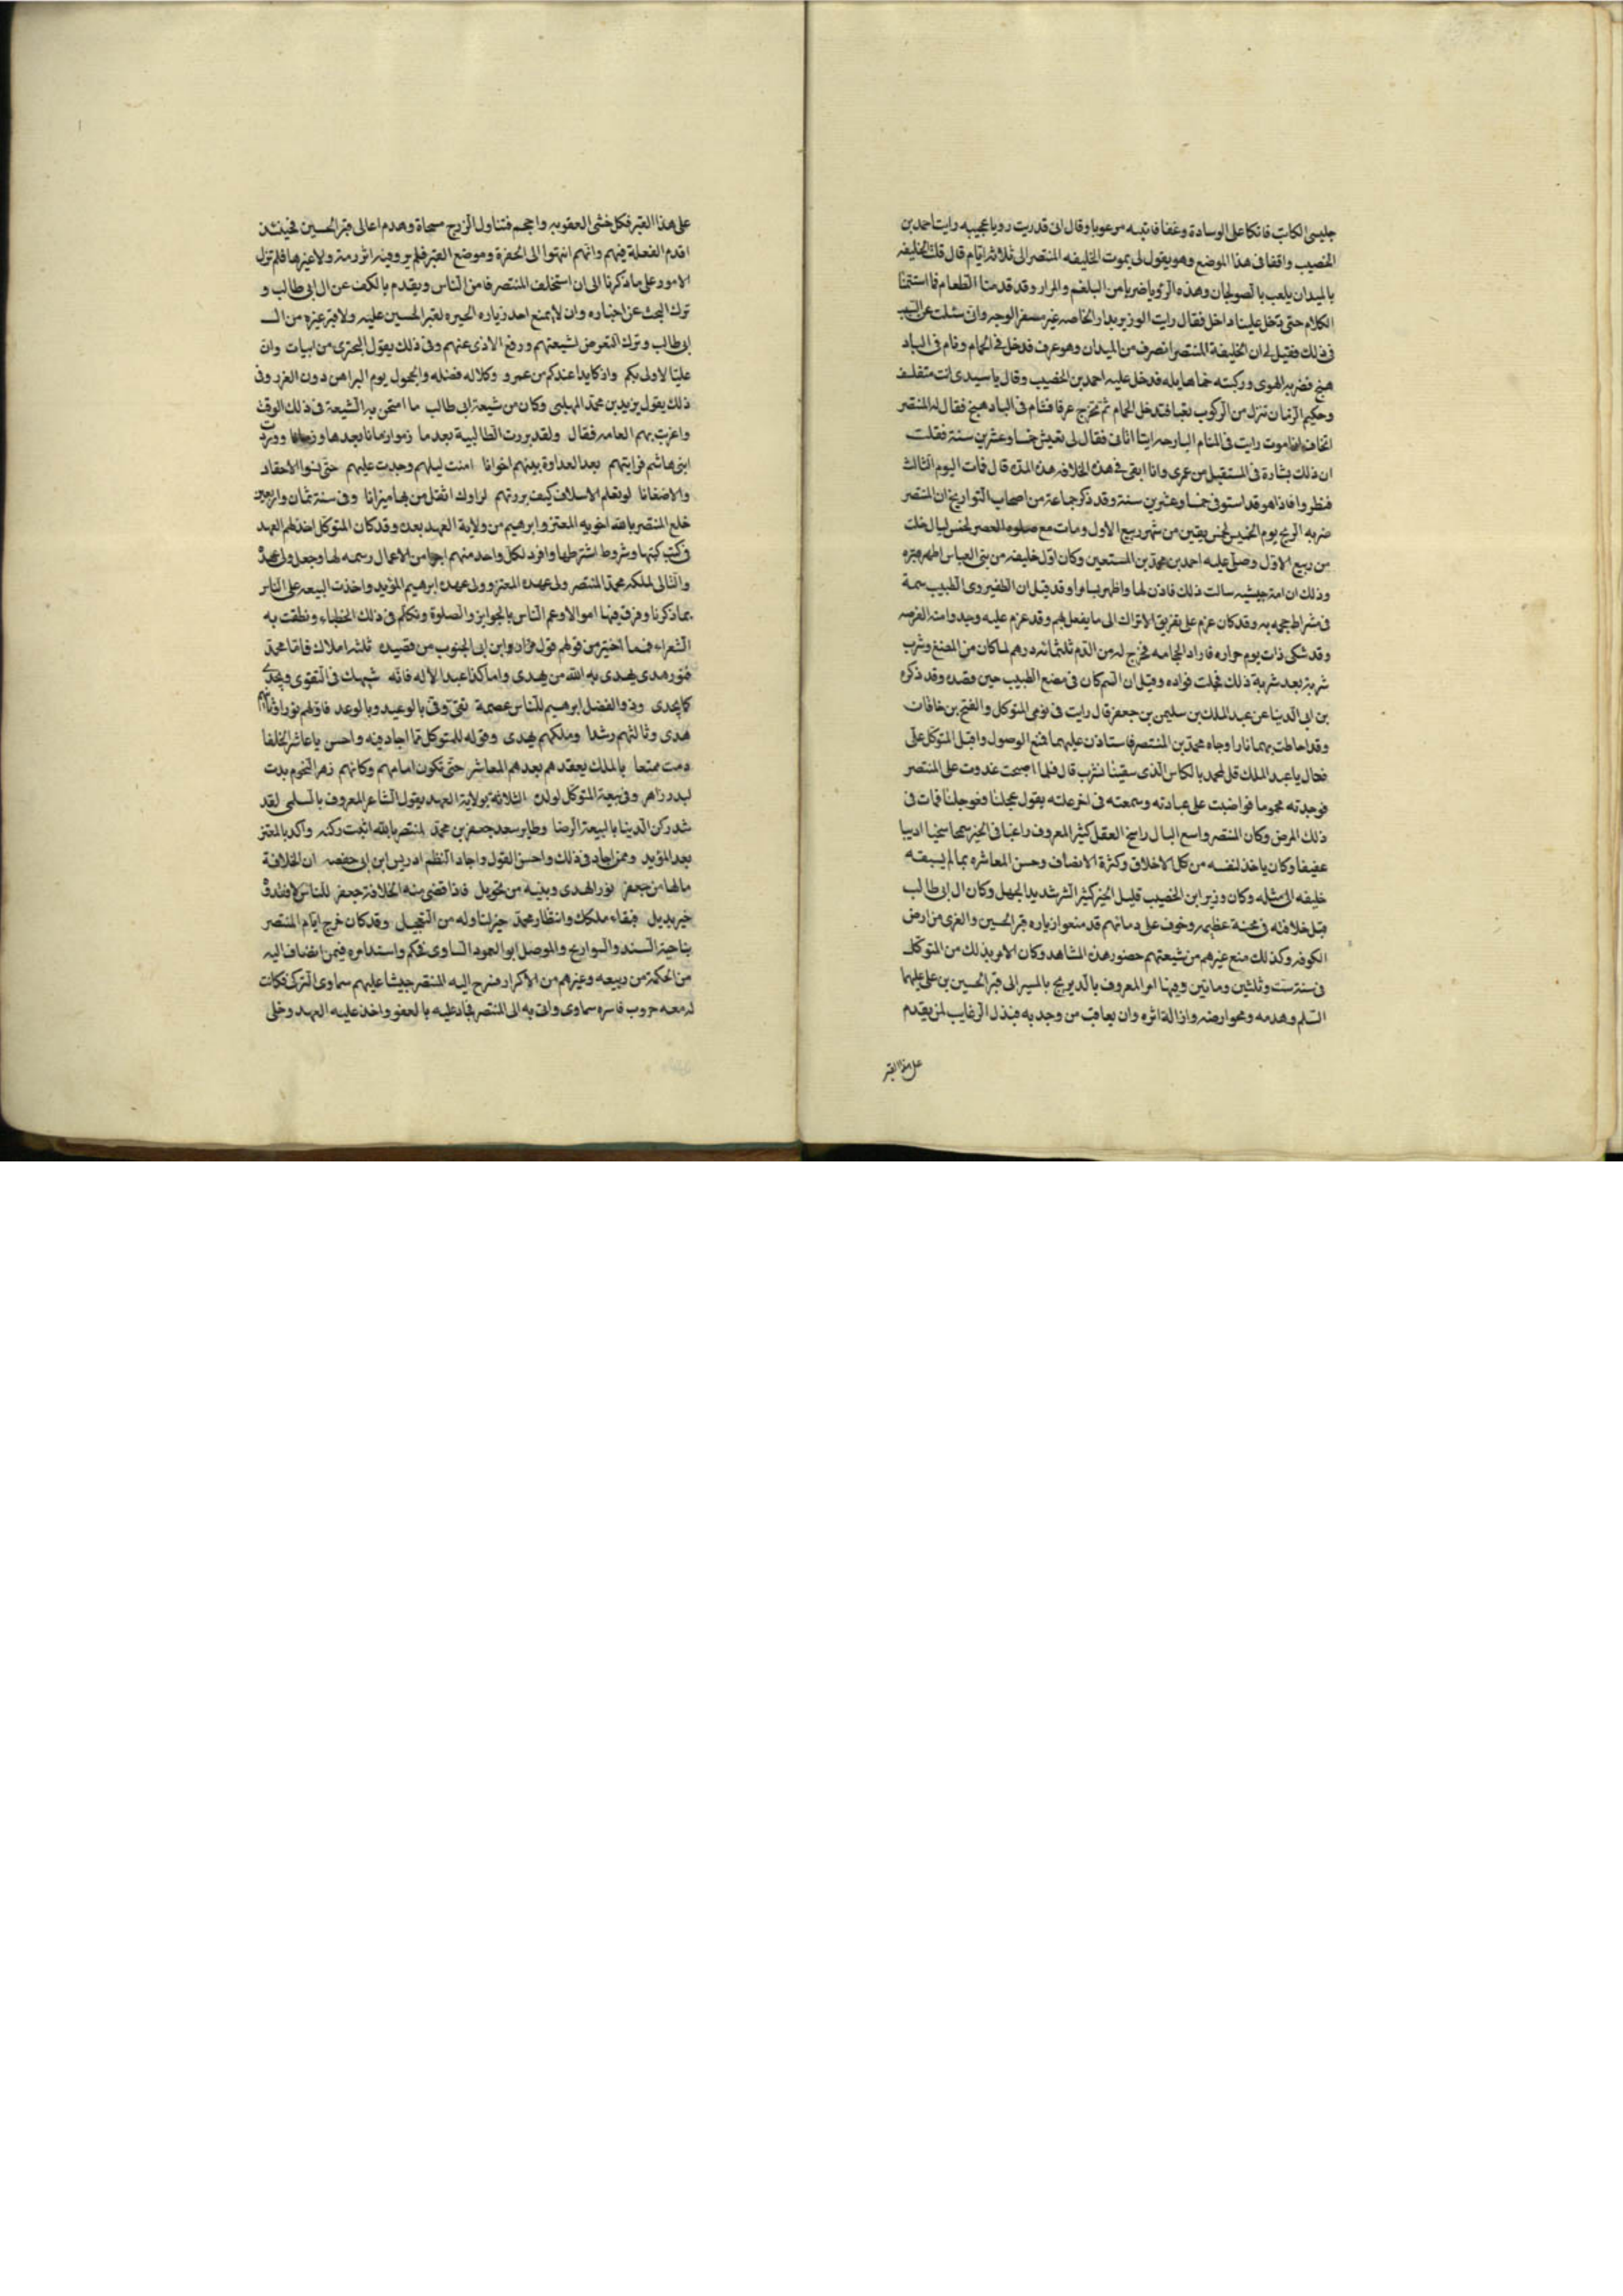 جليسى الكاتب فاتكا على الوسادة وغفا فانتبه مرعوبا وقال انى قد رايت رويا عجيبه رايت احمد بن
الخصيب واقفا فى هذا الموضع وهو يقول لى يموت الخليفه المنتصر الى ثلاثة ايام قال قلت الخليفه
بالميدان يلعب بالصولجان وهذه الرؤيا ضربا من البلغم والمرار وقد قدمنا الطعام فما استتمنا
الكلام حتى دخل علينا داخل فقال رايت الوزير بدار الخاصه غير مسفر الوجه وان سئلت عن السبب
فى ذلك فقيل لى ان الخليفة المنتصر انصرف من الميدان وهو عرق فدخل فى الحمام ونام فى الباد
هنج فضربه الهوى وركبته حما هايله فدخل عليه احمد بن الخصيب وقال يا سيدى انت متفلسف
وحكيم الزمان تنزل من الركوب تعبا فتدخل الحمام ثم تخرج عرقا فتنام فى الباد هنج فقال له المنتصر
اتخاف ان اموت رايت فى المنام البارحه ايتا اتانى فقال لى تعيش خمسا وعشرين سنة فقلت
ان ذلك بشارة فى المستقبل من عمرى وانا ابقى فى هذه الخلافه هذه المدة قال فمات اليوم الثالث
فنظروا فاذا هو قد استوفى خمسا وعشرين سنة وقد ذكر جماعة من اصحاب التواريخ ان المنتصر
ضربه الريح يوم الخميس لخمس بقين من شهر ربيع الاول ومات مع صلوه العصر لخمس ليال خلت
من ربيع الاول وصلى عليه احمد بن محمد بن المستعين وكان اول خليفه من بنى العباس اظهر قبره
وذلك ان امه حبيشيه سالت ذلك فاذن لها واظهر بسامرا وقد قيل ان الطفيروى الطبيب سمه
فى مشراط حجمه به وقد كان عزم على تفريق الاتراك الى ما يفعل بهم وقد عزم عليه وجيد وامنه الفرصه
وقد شكى ذات يوم حراره فاراد الحجامه فخرج له من الدم ثلثمائه درهم لما كان من الصنع وشرب
شربة بعد شربة ذلك فحلت فواده وقيل ان السم كان فى مبضع الطبيب حين فصده وقد ذكر
بن ابى الدنيا عن عبد الملك بن سليمن بن جعفر قال رايت فى نومى المتوكل والفتح بن خاقان
وقد احاطت بهما نارا وجاه محمد بن المنتصر فاستاذن عليهما فمنع الوصول واقبل المتوكل على
فقال يا عبد الملك قل لمحمد بالكاس الذى سقيتنا تشرب قال فلما اصبحت غدوت على المنتصر
فوجدته محموما فواضبت على عيادته وسمعته فى اخر علته يقول عجلنا فعوجلنا فمات فى
ذلك المرض وكان المنتصر واسع البال راسخ العقل كثير المعروف راغبا فى الخير سمحا سخيا اديبا
عفيفا وكان ياخذ لنفسه من كل الاخلاق وكثرة الانصاف وحسن المعاشره بما لم يسبقه
خليفه الى مثله وكان وزيره ابن الخصيب قليل الخير كثير الشر شديد الجهل وكان ال ابى طالب
قبل خلافته فى محنة عظيمه وخوف على دمائهم قد منعوا زياره قبر الحسين والغرى من ارض
الكوفه وكذلك منع غيرهم من شيعتهم حضور هذه المشاهد وكان الامر بذلك من المتوكل
فى سنة ست وثلثين ومائتين وفيها امر المعروف بالديريج بالمسير الى قبر الحسين بن على عليهما
السلم وهدمه ومحو ارضه وازالة اثره وان يعاقب من وجد به فبذل الرغايب لمن يقدم
على هذا القبر
على هذا القبر فكل خشى العقوبه واحجم فتناول الزريج مسحاة وهدم اعالى قبر الحسين فحينئذ
اقدم الفعلة فيهم وانهم انتهوا الى الحفرة وموضع القبر فلم يروفيه اثر رمة ولا غيرها فلم تزل
الامور على ما ذكرنا الى ان استخلف المنتصر فامن الناس ويقدم بالكف عن ال ابى طالب و
ترك البحث عن اخباره وان لا يمنع احد زياره الحيره لقبر الحسين عليه ولا قبر غيره من الـ
ابى طالب وترك التعرض لشيعتهم ورفع الاذى عنهم وفى ذلك يقول البحترى من ابيات وان
عليا لاولى بكم واذكا يدا عندكم من عمرو وكلا له فضله والحجول يوم البراهن دون الغرر وفى
ذلك يقول يزيد بن محمد المهلبى وكان من شيعة ابى طالب ما امتحن به الشيعة فى ذلك الوقت
واغريت بهم العامه فقال ولقد بررت الطالبية بعد ما زموا زمانا بعدها وزمانا ورددت
ابنى هاشم قرابتهم بعد العداوة بينهم اخوانا امنت ليلهم وجدت عليهم حتى نسوا الاحقاد
والاضغانا لو يعلم الاسلاف كيف بررتهم لراوك اثقل من بها ميزانا وفى سنة ثمان واربعين
خلع المنتصر بالله اخويه المعتز وابرهيم من ولاية العهد بعده وقد كان المتوكل اخذ لهم العهد
فى كتب كتبها وشروط اشترطها وافرد لكل واحد منهم اجزا من الاعمال رسمه لها وجعل ولى عهده
والتالى لملكه محمد المنتصر وولى عهده المعتز وولى عهده ابرهيم المؤيد واخذت البيعه على الناس
بما ذكرنا وفرق فيها اموالا وعم الناس بالجوايز والصلوة وتكلم فى ذلك الخطباء ونطقت به
الشعراء فمما اختير من قولهم قول مروان بن ابى الجنوب من قصيده ثلثة املاك فاما محمد
فنور هدى يهدى به الله من يهدى واما كذا عبد الاله فانه شبيهك فى التقوى ويجدى
كما يجدى وذو الفضل ابرهيم للناس عصمة تقى وفى بالوعيد وبالوعد فاولهم نور وثانيهم
هدى وثالثهم رشدا وملكهم يهدى وقوله للمتوكل مما اجاد فيه واحسن يا عاشر الخلفا
دمت ممتعا بالملك يعقدهم بعدهم المعاشر حتى تكون امامهم وكانهم زهر النجوم بدت
لبدر زاهر وفى بيعة المتوكل لولده الثلاثة بولاية العهد يقول الشاعر المعروف بالسلمى لقد
شد ركن الدينا بالبيعة الرضا وطاير سعد جعفر بن محمد لمنتصر بالله اثبت ركنه واكد بالمعتز
بعد المؤيد وممن اجاد فى ذلك واحسن القول واجاد النظم ادريس ابن ابى حفصه ان الخلافة
مالها من جعفر نور الهدى وبنيه من تحويل فاذا قضى منه الخلافة جعفر للناس لا فقدو
خير بديل فبقاء ملكك وانتظار محمد خير لنا وله من التعجيل وقد كان خرج ايام المنتصر
بناحية السند والبوازيج والموصل ابو العمود السارى فحكم واشتد امره فيمن انضاف اليه
من الحكمة من ربيعه وغيرهم من الاكراد فسرح اليه المنتصر جيشا عليهم سماوى التركى فكانت
له معه حروب فاسره سماوى واتى به الى المنتصر فجاد عليه بالعفو واخذ عليه العهد وخلى